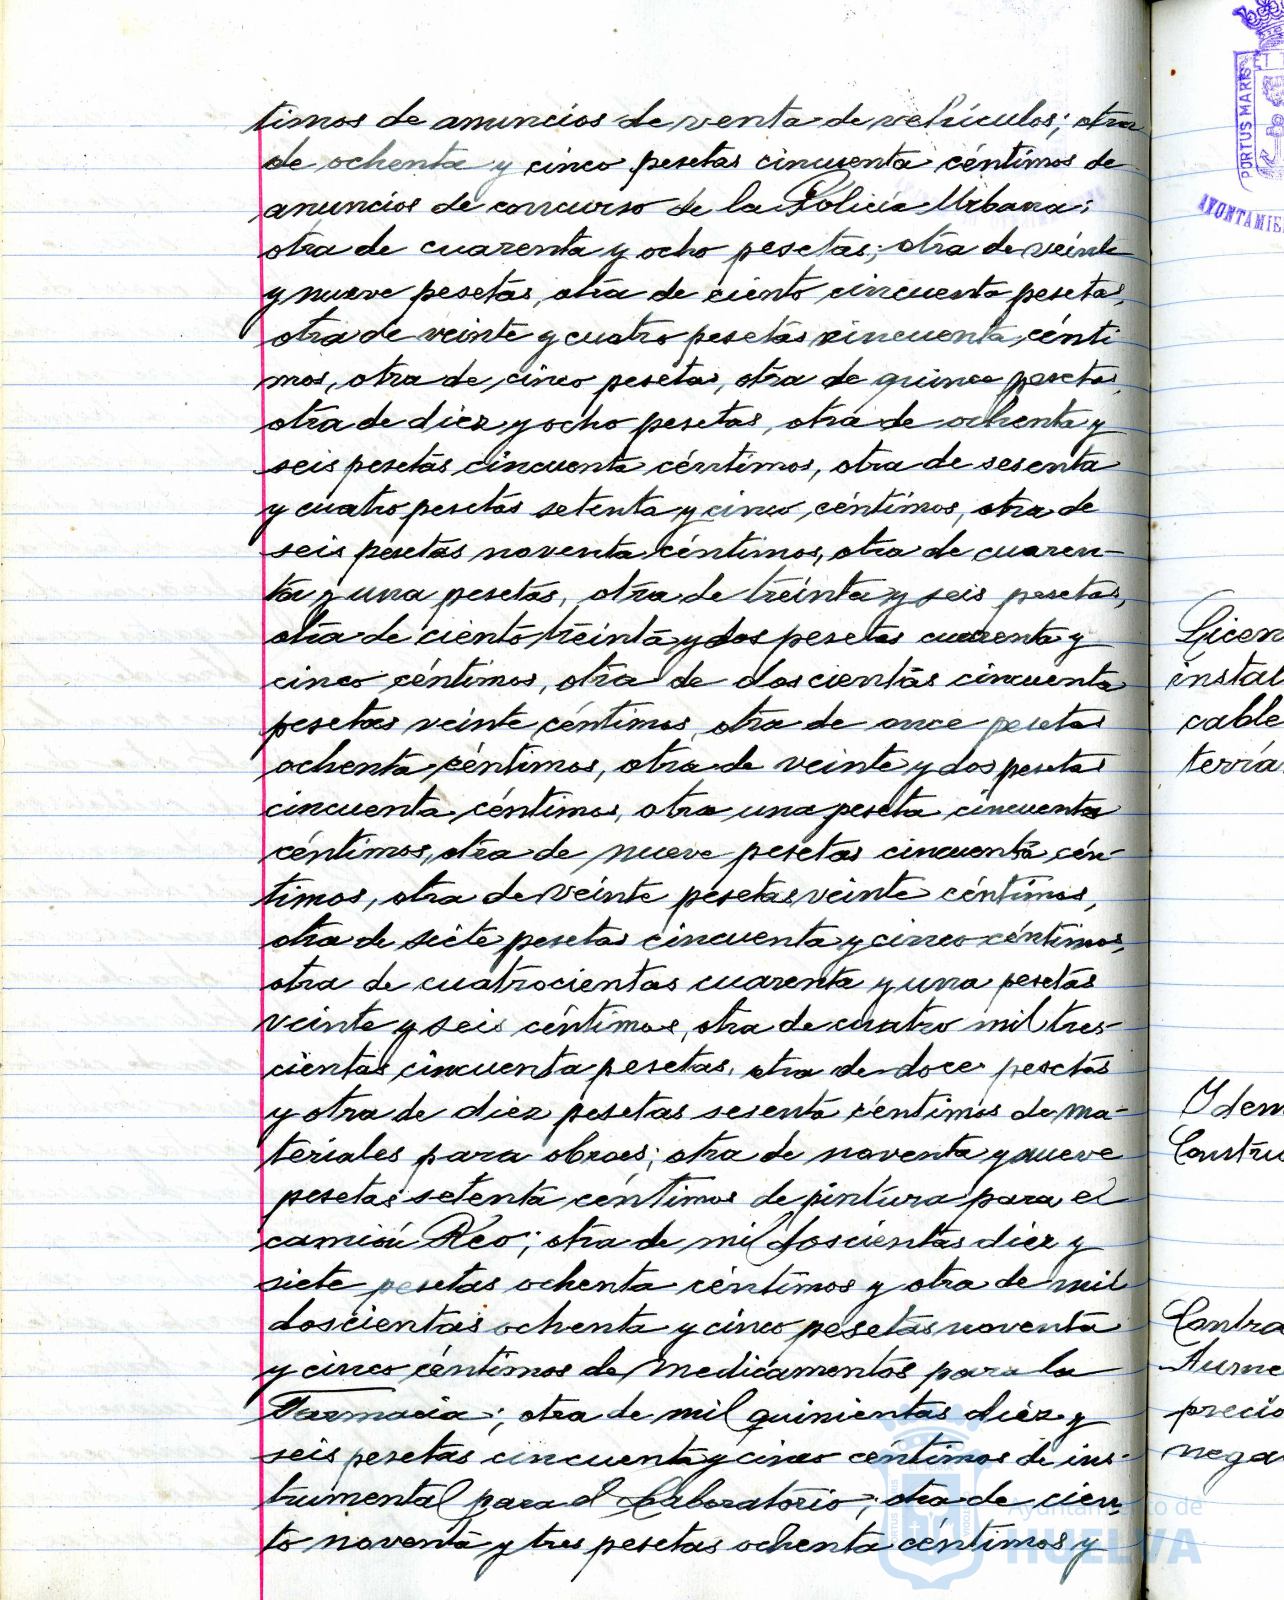 timos de anuncios de venta de vehículos; otra
de ochenta y cinco pesetas cincuenta céntimos de
anuncios de concurso de la Policía Urbana;
otra de cuarenta y ocho pesetas; otra de veinte
y nueve pesetas, otra de ciento cincuenta pesetas,
otra de veinte y cuatro pesetas cincuenta cénti
mos, otra de cinco pesetas, otra de quince pesetas,
otra de diez y ocho pesetas, otra de ochenta y
seis pesetas cincuenta céntimos, otra de sesenta
y cuatro pesetas setenta y cinco céntimos, otra de
seis pesetas noventa céntimos, otra de cuaren-
ta y una pesetas, otra de treinta y seis pesetas,
otra de ciento treinta y dos pesetas cuarenta y
cinco céntimos, otra de doscientas cincuenta
pesetas veinte céntimos, otra de once pesetas
ochenta céntimos, otra de veinte y dos pesetas
cincuenta céntimos, otra una peseta cincuenta
céntimos, otra de nueve pesetas cincuenta cén-
timos, otra de veinte pesetas veinte céntimos,
otra de siete pesetas cincuenta y cinco céntimos,
otra de cuatrocientas cuarenta y una pesetas
veinte y seis céntimos, otra de cuatro mil tres-
cientas cincuenta pesetas, otra de doce pesetas
y otra de diez pesetas sesenta céntimos de ma-
teriales para obras; otra de noventa y nueve
pesetas setenta céntimos de pintura para el
camión Reo; otra de mil doscientas diez y
siete pesetas ochenta céntimos y otra de mil
doscientas ochenta y cinco pesetas noventa
y cinco céntimos de medicamentos para la
Farmacia; otra de mil quinientas diez y
seis pesetas cincuenta y cinco céntimos de ins-
trumental para el Laboratorio; otra de cien-
to noventa y tres pesetas ochenta céntimos y
PORTUS MARIS
AYUNTAMIE
Licen
instal
cable
terrá
Idem
Constru
Contra
Aume
precio
nega
Ayuntamiento de
HUELVA